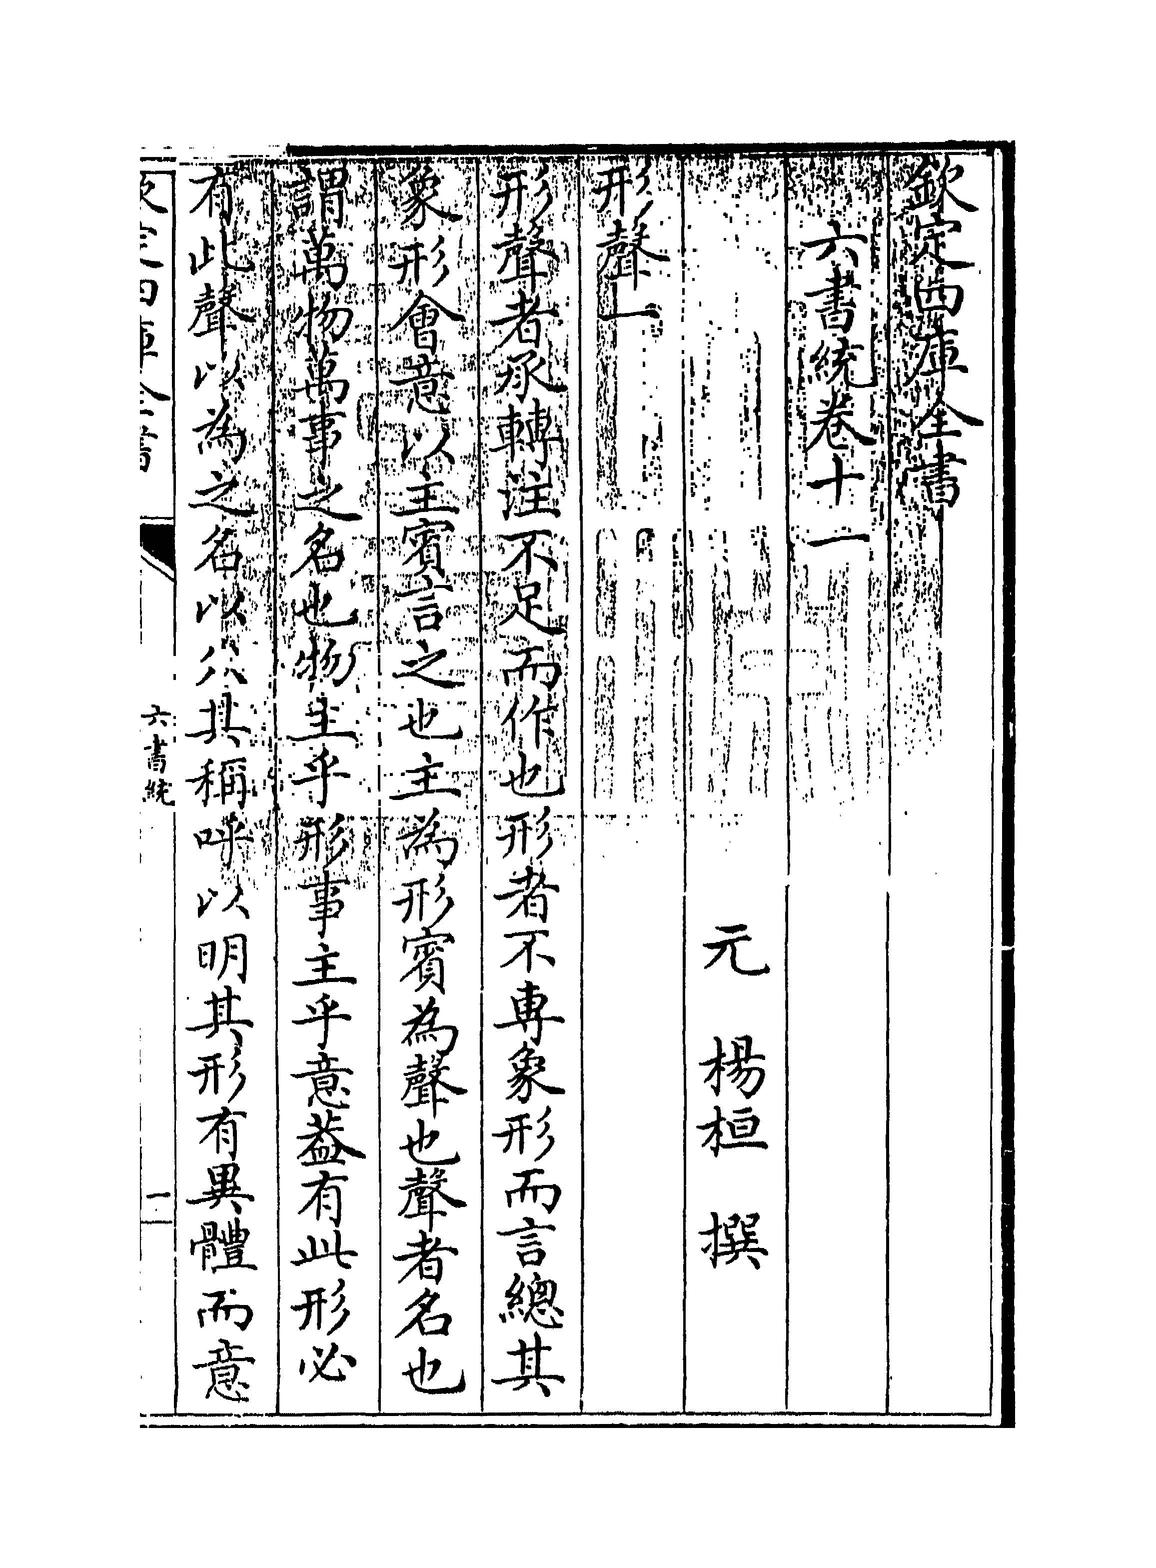 欽定四庫全書
六書統卷十一
元 楊桓 撰
形聲一
形聲者承轉注不足而作也形者不專象形而言總其
象形會意以主賓言之也主為形賓為聲也聲者名也
謂萬物萬事之名也物主乎形事主乎意葢有此形必
有此聲以為之名以公其稱呼以明其形有異體而意
欽定四庫全書
六書統
一